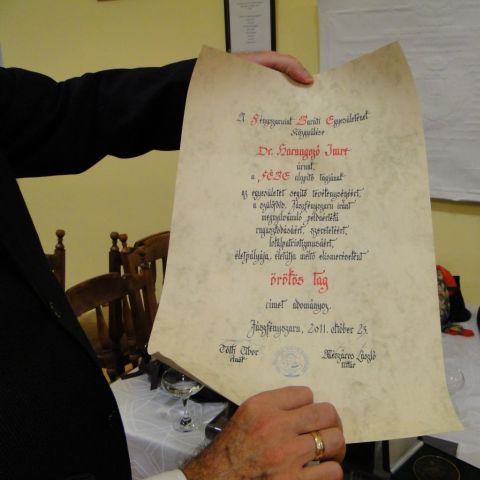 A Fényszaruiak Baráti Egyesületének
Közgyűlése
Dr. Harangozó Imre
úrnak,
a FÉBE alapító tagjának
az egyesületet segítő tevékenységéért,
a szülőföld, Jászfényszaru iránt
megnyilvánuló példaértékű
ragaszkodásáért, szeretetéért,
lokálpatriotizmusáért,
életpályája, életútja méltó elismeréseként
örökös tag
címet adományoz.
Jászfényszaru, 2011. október 23.
Tóth Tibor Mészáros László
elnök titkár